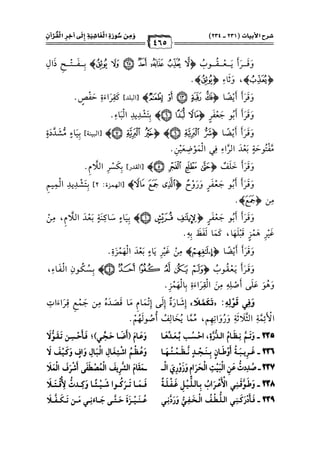 شرح الأبيات (٢٣١ - ٢٣٤) وَمِنْ سُورَةِ الْغَاشِيَةِ إِلَى آخِرِ الْقُرْآنِ
٤٦٥
وَقَــرَأَ يَــعْــقُــوبُ ﴿لَّا يُعَذِّبُ عَذَابَهُۥٓ أَحَدٌ ۝٢٥ وَلَا يُوثِقُ﴾ بِــفَــتْــحِ ذَالِ
﴿يُعَذِّبُ﴾، وَثَاءِ ﴿يُوثِقُ﴾.
وَقَرَأَ أَيْضًا ﴿فَكُّ رَقَبَةٍ ۝١٣ أَوْ إِطْعَٰمٌ﴾ [البلد] كَقِرَاءَةِ حَفْصٍ.
وَقَرَأَ أَبُو جَعْفَرٍ ﴿مَالًا لُّبَدًا ۝٦﴾ [البلد] بِتَشْدِيدِ الْبَاءِ.
وَقَرَأَ أَيْضًا ﴿شَرُّ الْبَرِيَّةِ ۝٦﴾ ﴿خَيْرُ الْبَرِيَّةِ ۝٧﴾ [البينة] بِيَاءٍ مُشَدَّدَةٍ
مَفْتُوحَةٍ بَعْدَ الرَّاءِ فِي الْمَوْضِعَيْنِ.
وَقَرَأَ خَلَفٌ ﴿حَتَّىٰ مَطْلَعِ الْفَجْرِ ۝٥﴾ [القدر] بِكَسْرِ اللَّامِ.
وَقَرَأَ أَبُو جَعْفَرٍ وَرَوْحٌ ﴿الَّذِي جَمَعَ مَالًا﴾ [الهمزة: ٢] بِتَشْدِيدِ الْمِيمِ
مِن ﴿جَمَعَ﴾.
وَقَرَأَ أَبُو جَعْفَرٍ ﴿لِإِيلَٰفِ قُرَيْشٍ ۝١﴾ بِيَاءٍ سَاكِنَةٍ بَعْدَ اللَّامِ، مِنْ
غَيْرِ هَمْزٍ قَبْلَهَا، كَمَا لَفَظَ بِهِ.
وَقَرَأَ أَيْضًا ﴿إِۦلَٰفِهِمْ﴾ مِنْ غَيْرِ يَاءٍ بَعْدَ الْهَمْزَةِ.
وَقَرَأَ يَعْقُوبُ أَيْضًا ﴿وَلَمْ يَكُن لَّهُۥ كُفْؤًا أَحَدٌ ۝٤﴾ بِسُكُونِ الْفَاءِ،
وَهُوَ عَلَى أَصْلِهِ مِنَ الْقِرَاءَةِ بِالْهَمْزِ.
وَفِي قَوْلِهِ: «تَكَمَّلَا»، إِشَارَةٌ إِلَى إِتْمَامِ مَا قَصَدَهُ مِنْ جَمْعِ قِرَاءَاتِ
الْأَئِمَّةِ الثَّلَاثَةِ وَرُوَاتِهِمْ، مِمَّا يُخَالِفُ أُصُولَهُمْ.
٢٣٥ - وَتَــمَّ نِــظَــامُ الــدُّرَّةِ احْـسُـبْ بِـعَـدِّهَـا وَعَـامَ (أَضَـا حَـجِّـي) فَـأَحْـسِـنْ تَـفَـوُّلَا
٢٣٦ - غَـرِيـبَـةُ أَوْطَـانٍ بِـنَـجْـدٍ نَـظَـمْـتُـهَـا وَعُـظْـمُ اشْـتِـغَـالِ الْبَـالِ وَافٍ وَكَـيْـفَ لَا
٢٣٧ - صُدِدْتُ عَنِ الْبَيْتِ الْحَرَامِ وَزَوْرِيَ الْـ ـمَقَامَ الشَّرِيفَ الْمُصْطَفَى أَشْرَفَ الْمَلَا
٢٣٨ - وَطَـوَّقَـنِـي الْأَعْـرَابُ بِـالـلَّـيْـلِ غَـفْـلَـةً فَـمَـا تَـرَكُـوا شَـيْـئًـا وَكِـدْتُ لَأُقْـتَـلَا
٢٣٩ - فَأَدْرَكَنِي الـلُّـطْـفُ الْخَـفِـيُّ وَرَدَّنِي عُـنَـيْـزَةَ حَـتَّـى جَـاءَنِـي مَـنْ تَـكَـفَّـلَا